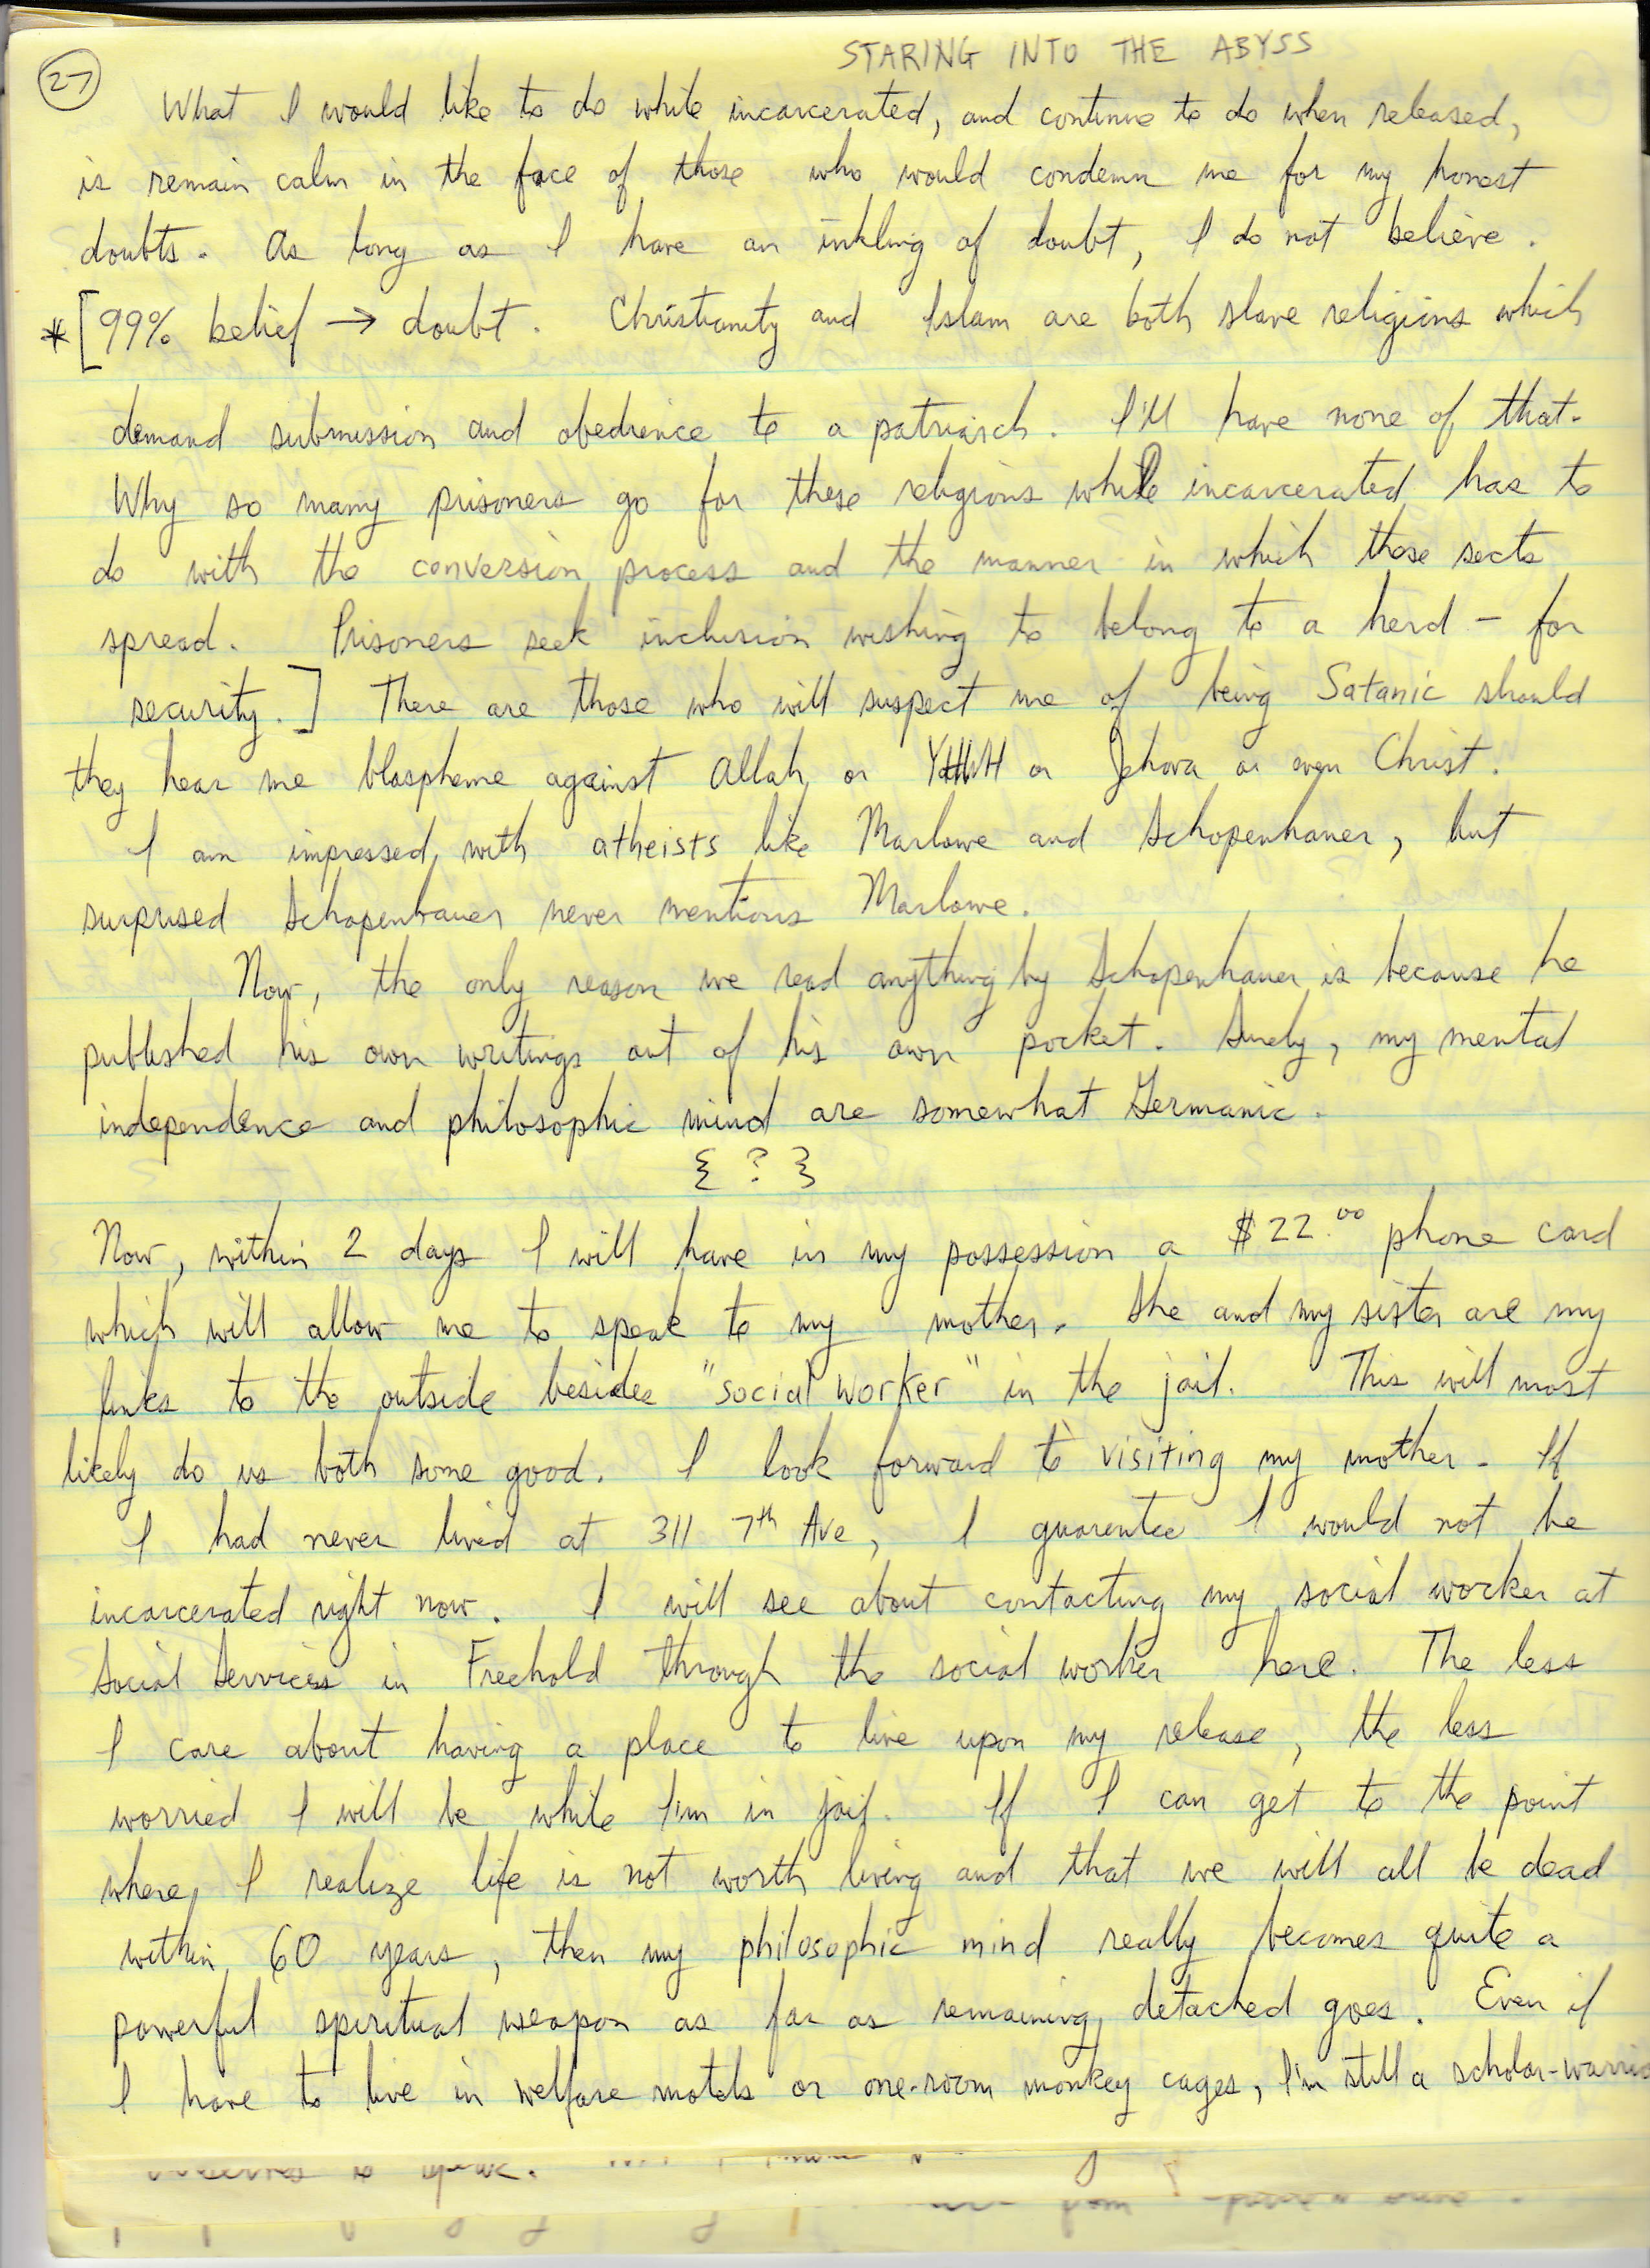 STARING INTO THE ABYSS
27
What I would like to do while incarcerated, and continue to do when released,
is remain calm in the face of those who would condemn me for my honest
doubts. As long as I have an inkling of doubt, I do not believe.
* [99% belief → doubt. Christianity and Islam are both slave religions which
demand submission and obedience to a patriarch. I'll have none of that.
Why so many prisoners go for these religions while incarcerated has to
do with the conversion process and the manner in which those sects
spread. Prisoners seek inclusion wishing to belong to a herd - for
security.] There are those who will suspect me of being Satanic should
they hear me blaspheme against Allah or YHWH or Jehova or even Christ.
I am impressed with atheists like Marlowe and Schopenhauer, but
surprised Schopenhauer never mentions Marlowe.
Now, the only reason we read anything by Schopenhauer is because he
published his own writings out of his own pocket. Surely, my mental
independence and philosophic mind are somewhat Germanic.
{ ? }
Now, within 2 days I will have in my possession a $22.00 phone card
which will allow me to speak to my mother. She and my sister are my
links to the outside besides "social worker" in the jail. This will most
likely do us both some good. I look forward to visiting my mother. If
I had never lived at 311 7th Ave, I guarentee I would not be
incarcerated right now. I will see about contacting my social worker at
Social Services in Freehold through the social worker here. The less
I care about having a place to live upon my release, the less
worried I will be while I'm in jail. If I can get to the point
where I realize life is not worth living and that we will all be dead
within 60 years, then my philosophic mind really becomes quite a
powerful spiritual weapon as far as remaining detached goes. Even if
I have to live in welfare motels or one-room monkey cages, I'm still a scholar-warrio